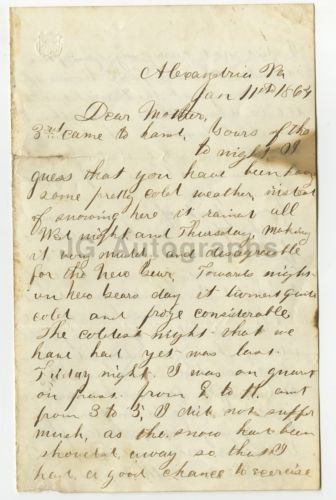 Alexandria Va
Jan 11th 1864
Dear Mother,
Yours of the
3rd came to hand
to night I
guess that you have been having
some pretty cold weather, instead
of snowing here it rained all
Wed night and Thursday, making
it very muddy and disagreeable
IG Autographs
for the New Year. Towards night
on New Years day it turned quite
cold and froze considerable
The coldest night that we
have had yet was last
Friday night. I was on guard
on from 9 to 11, and
from 3 to 5, I did not suffer
much, as the snow had been
shoveled away so that I
had a good chance to exercise